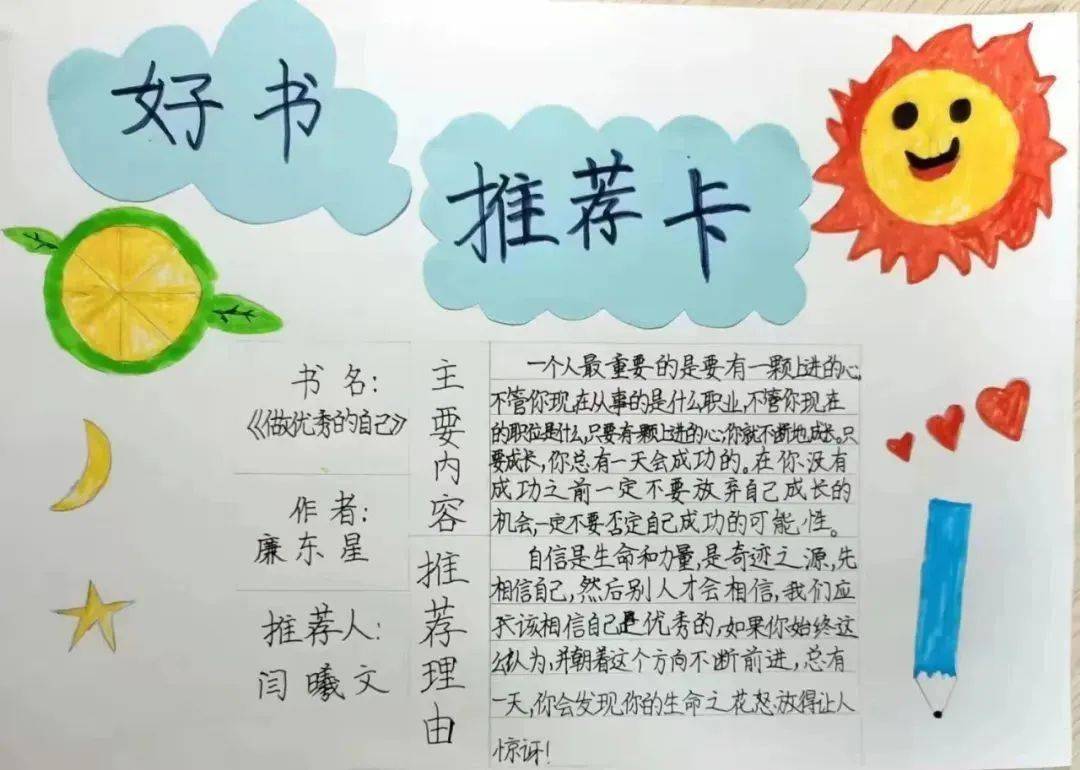 好书
推荐卡
书名:
《做优秀的自己》
作者:
廉东星
推荐人:
闫曦文
主要内容
一个人最重要的是要有一颗上进的心,
不管你现在从事的是什么职业,不管你现在
的职位是什么,只要有一颗上进的心,你就不断地成长。只
要成长,你总有一天会成功的。在你没有
成功之前一定不要放弃自己成长的
机会,一定不要否定自己成功的可能性。
推荐理由
自信是生命和力量,是奇迹之源,先
相信自己,然后别人才会相信,我们应
该相信自己是优秀的,如果你始终这
么认为,并朝着这个方向不断前进,总有
一天,你会发现你的生命之花怒放得让人
惊讶!